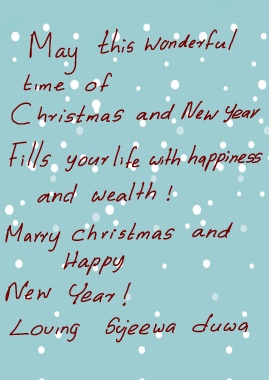 May this wonderful
time of
Christmas and New Year
Fills your life with happiness
and wealth !
Marry christmas and
Happy
New Year !
Loving Sujeewa duwa